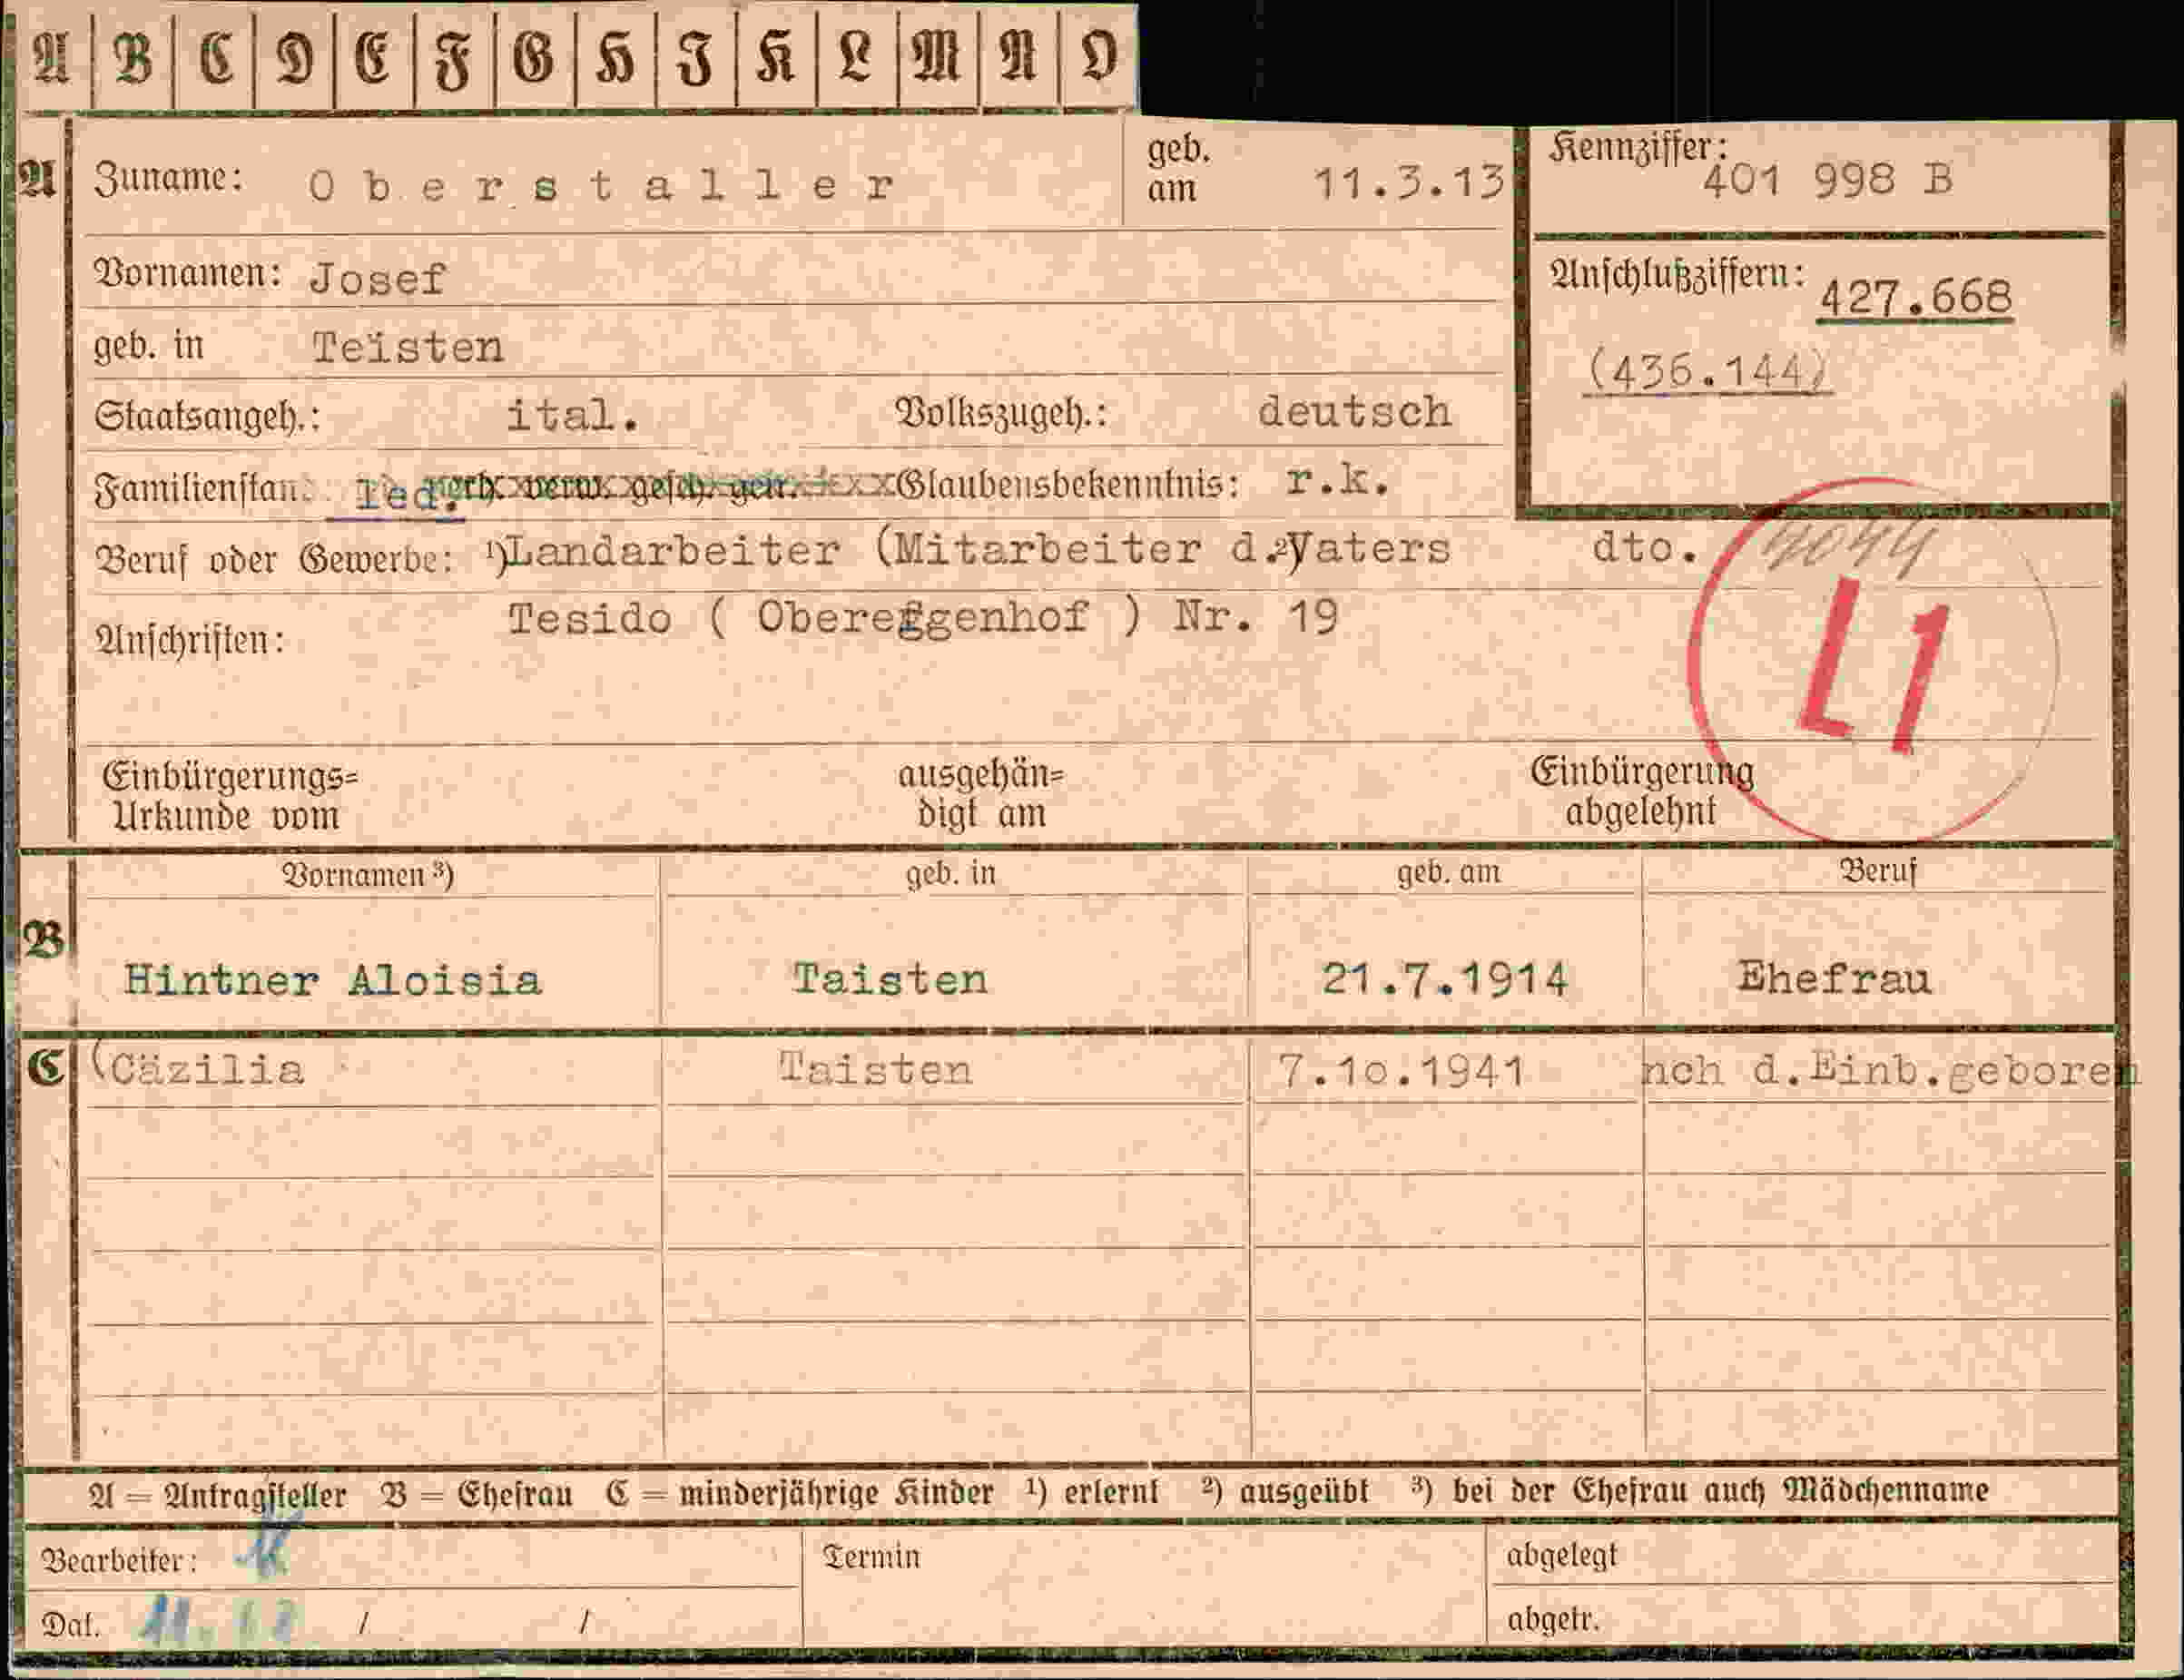 A B C D E F G H J K L M N O
A Zuname: Oberstaller geb. am 11.3.13 Kennziffer: 401 998 B
Vornamen: Josef Anschlußziffern: 427.668
geb. in Teisten (436.144)
Staatsangeh.: ital. Volkszugeh.: deutsch
Familienstan led. verh. verw. gesch. getr. xxx Glaubensbekenntnis: r.k.
Beruf oder Gewerbe: ¹)Landarbeiter (Mitarbeiter d.²)Vaters dto.
Anschriften: Tesido ( Obereggenhof ) Nr. 19
L1
Einbürgerungs= ausgehän= Einbürgerung
Urkunde vom digt am abgelehnt
Vornamen ³) geb. in geb. am Beruf
B Hintner Aloisia Taisten 21.7.1914 Ehefrau
C (Cäzilia Taisten 7.10.1941 nch d.Einb.geboren
A = Antragsteller B = Ehefrau C = minderjährige Kinder ¹) erlernt ²) ausgeübt ³) bei der Ehefrau auch Mädchenname
Bearbeiter: Termin abgelegt
Dat. 11. / / abgetr.